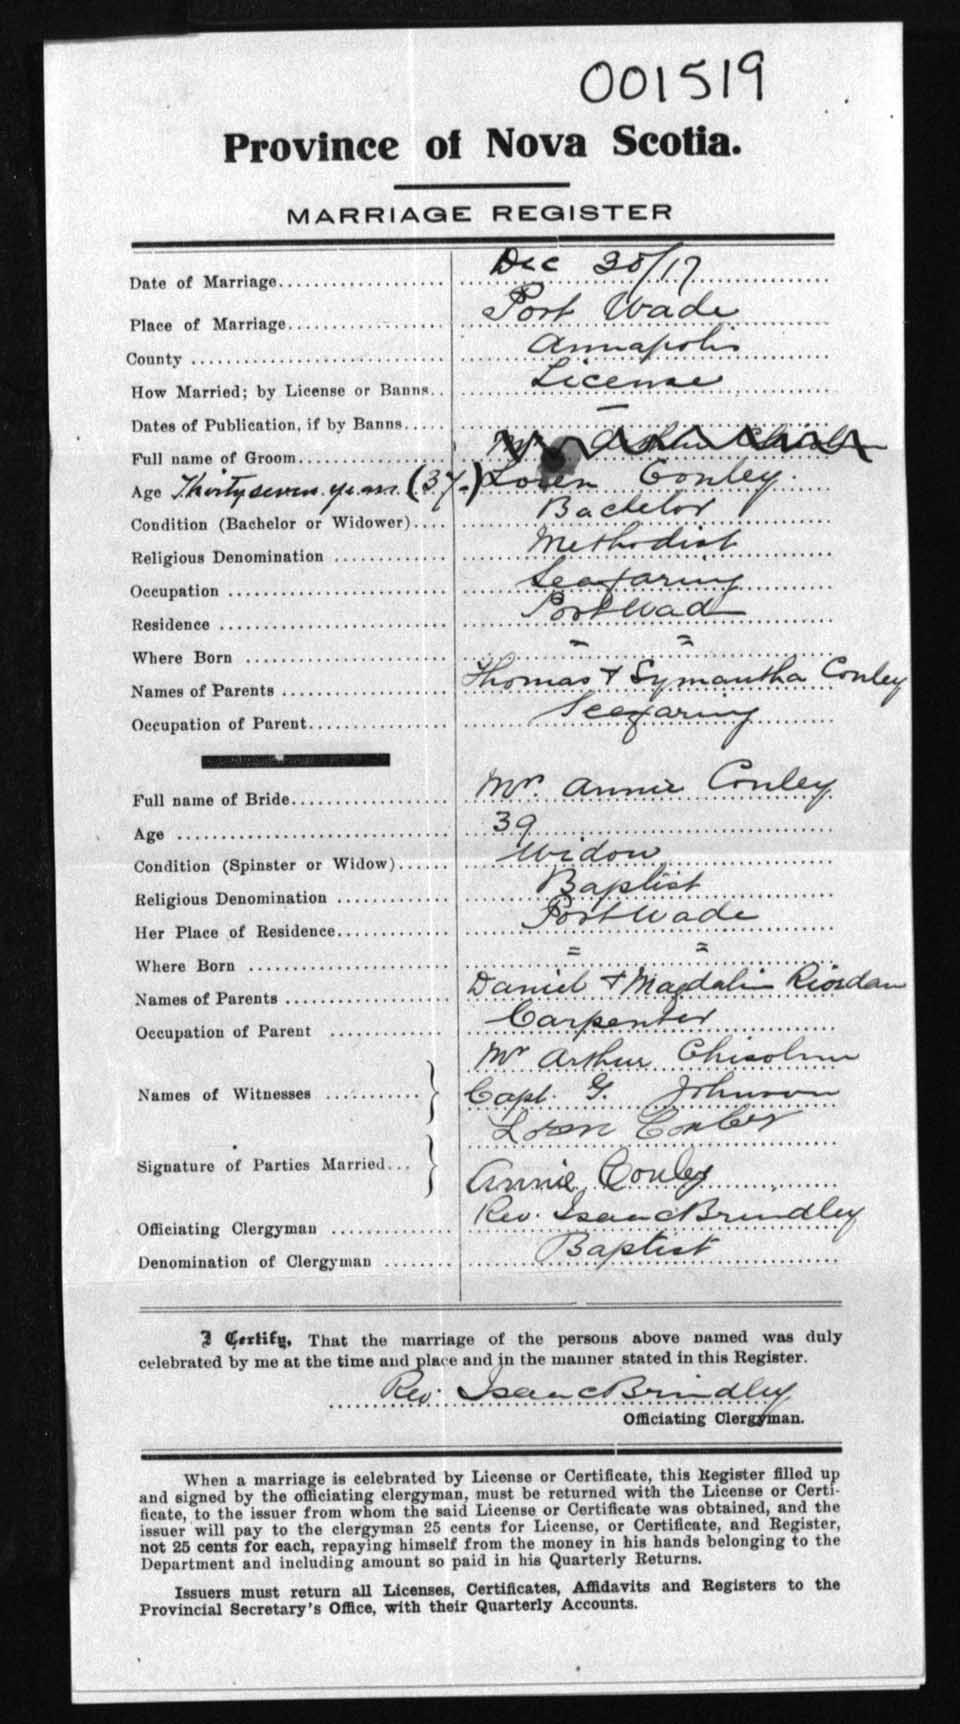 001519
Province of Nova Scotia.
MARRIAGE REGISTER
Date of Marriage Dec 30/17
Place of Marriage Port Wade
County Annapolis
How Married; by License or Banns License
Dates of Publication, if by Banns —
Full name of Groom Mr Arthur Chisolm
Age Thirty seven years (37) Loren Conley
Condition (Bachelor or Widower) Bachelor
Religious Denomination Methodist
Occupation Seafaring
Residence Port Wade
Where Born " "
Names of Parents Thomas + Symantha Conley
Occupation of Parent Seafaring
Full name of Bride Mr. Annie Conley
Age 39
Condition (Spinster or Widow) Widow
Religious Denomination Baptist
Her Place of Residence Port Wade
Where Born " "
Names of Parents Daniel + Magdalin Riordan
Occupation of Parent Carpenter
Mr Arthur Chisolm
Names of Witnesses Capt. G. Johnson
Loren Conley
Signature of Parties Married Annie Conley
Officiating Clergyman Rev. Isaac Brindley
Denomination of Clergyman Baptist
I Certify, That the marriage of the persons above named was duly
celebrated by me at the time and place and in the manner stated in this Register.
Rev. Isaac Brindley
Officiating Clergyman.
When a marriage is celebrated by License or Certificate, this Register filled up
and signed by the officiating clergyman, must be returned with the License or Certi-
ficate, to the issuer from whom the said License or Certificate was obtained, and the
issuer will pay to the clergyman 25 cents for License, or Certificate, and Register,
not 25 cents for each, repaying himself from the money in his hands belonging to the
Department and including amount so paid in his Quarterly Returns.
Issuers must return all Licenses, Certificates, Affidavits and Registers to the
Provincial Secretary's Office, with their Quarterly Accounts.